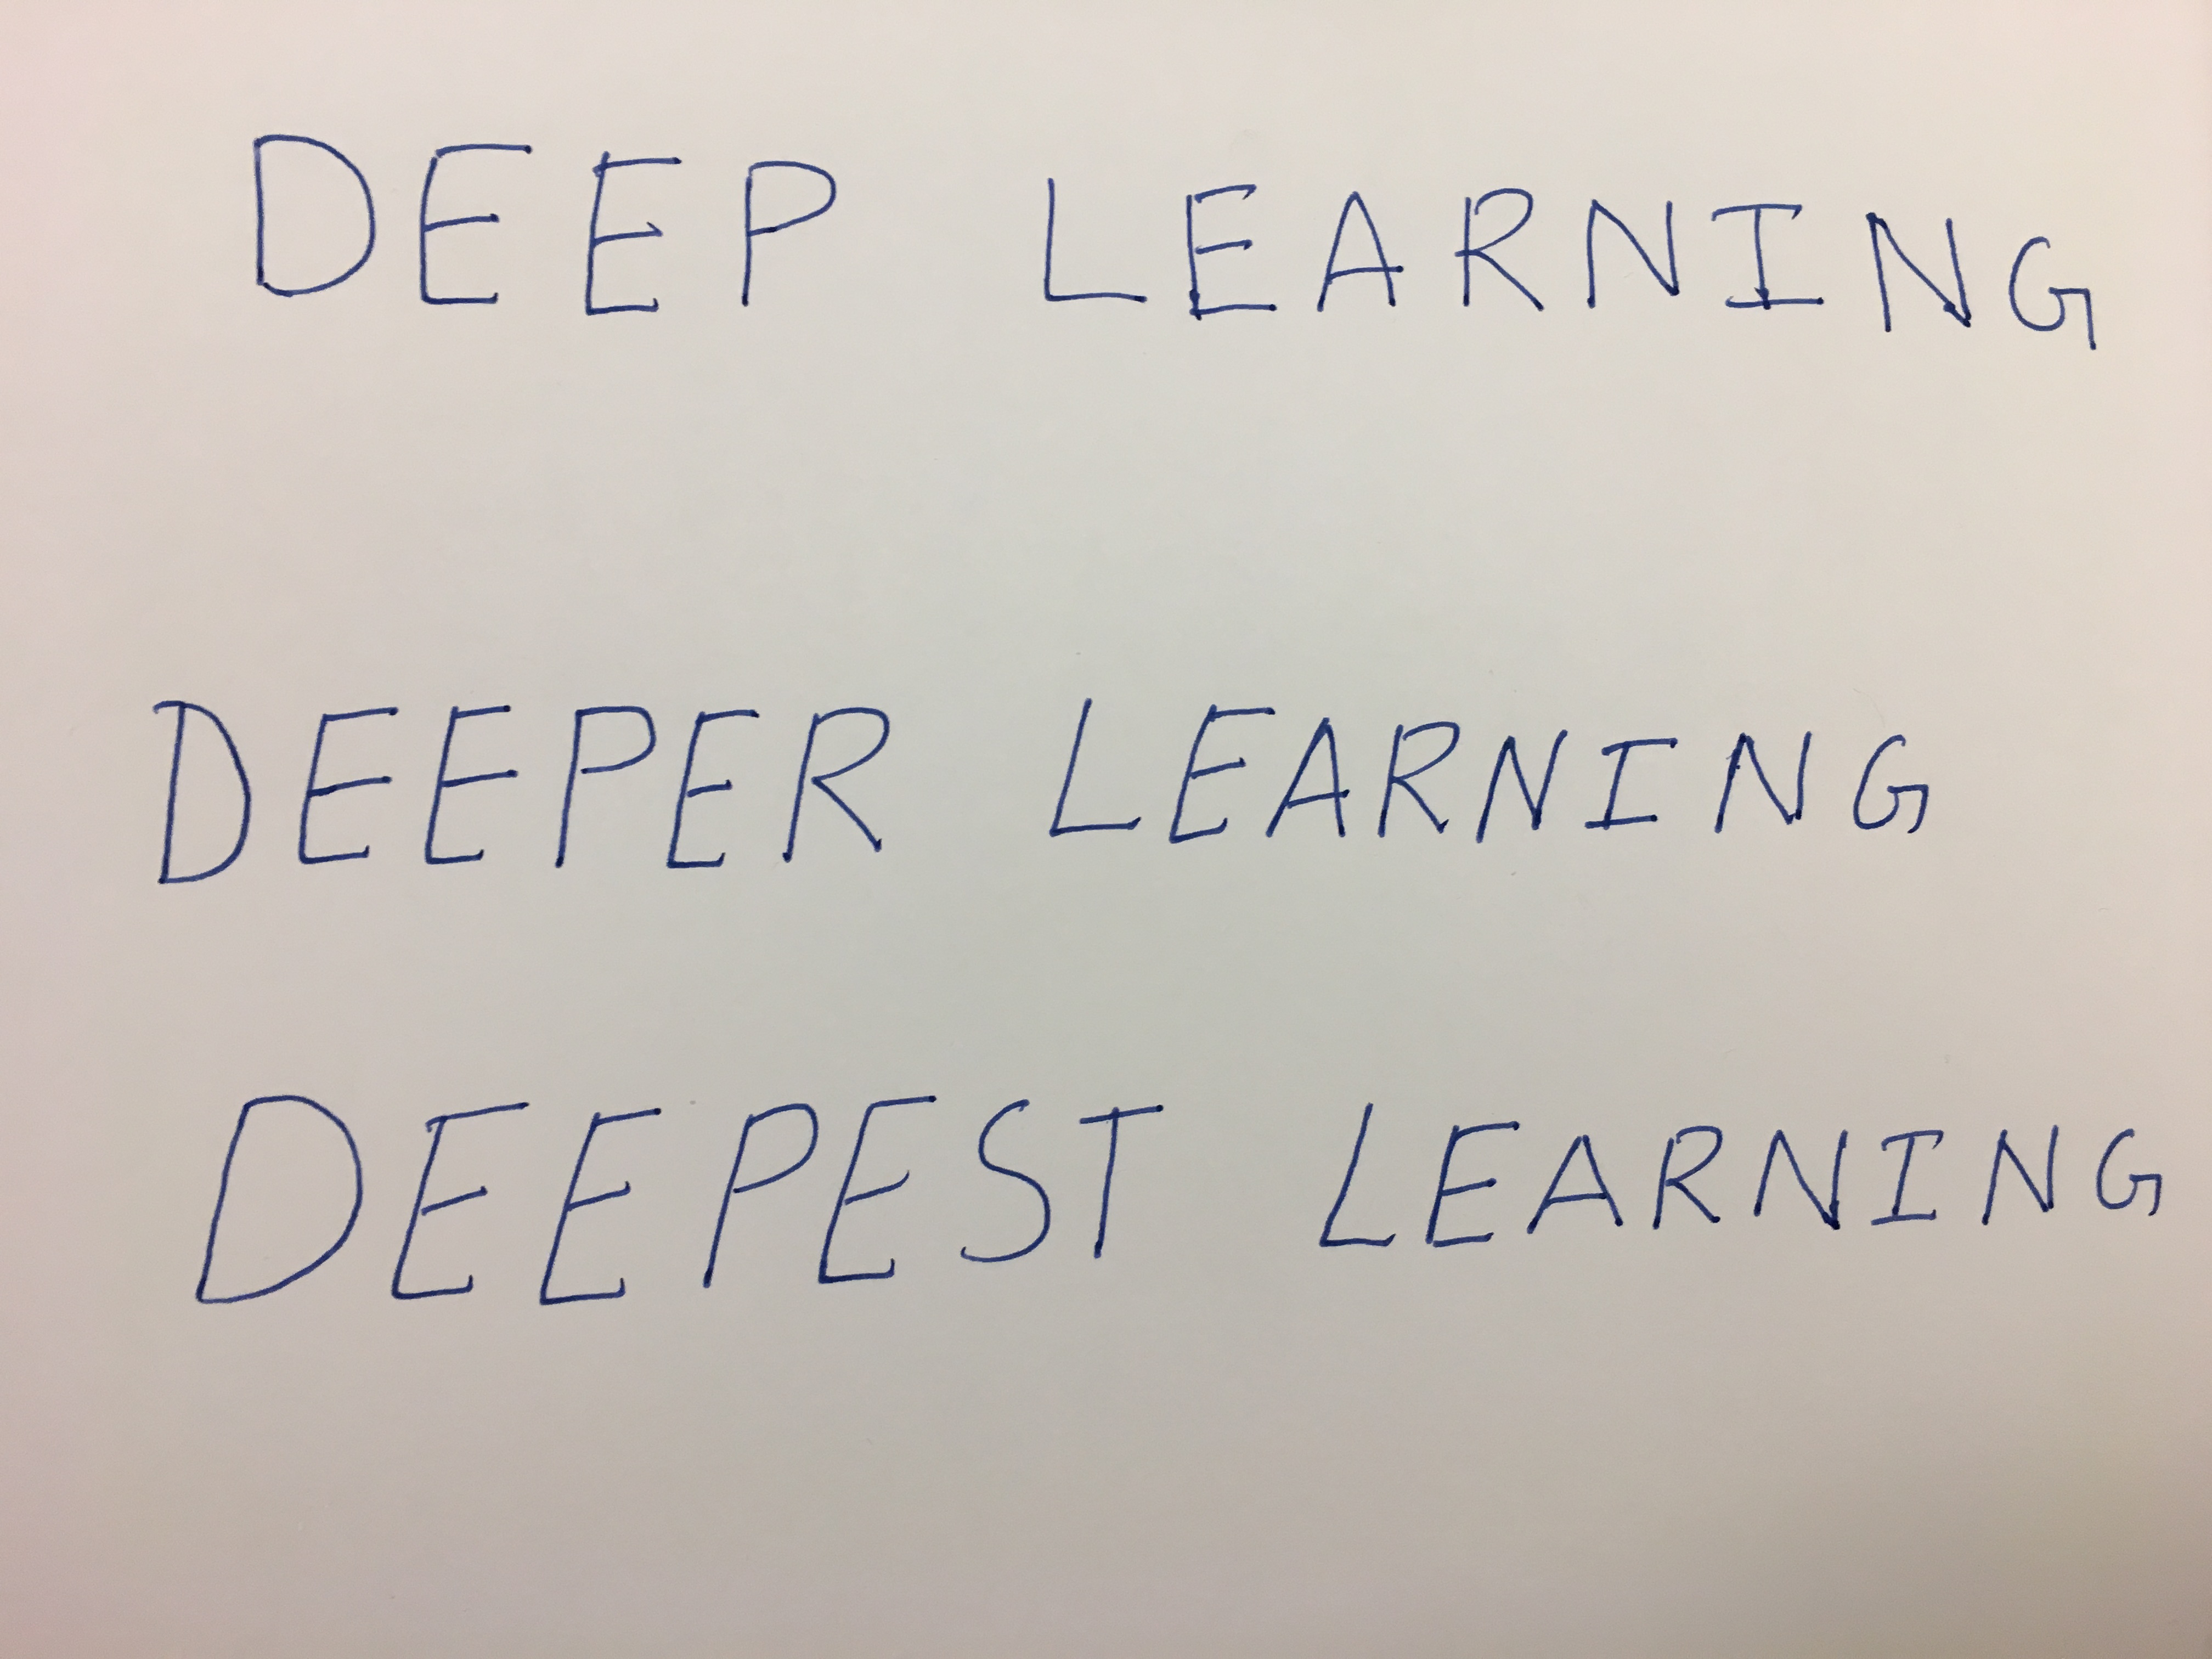 DEEP LEARNING
DEEPER LEARNING
DEEPEST LEARNING